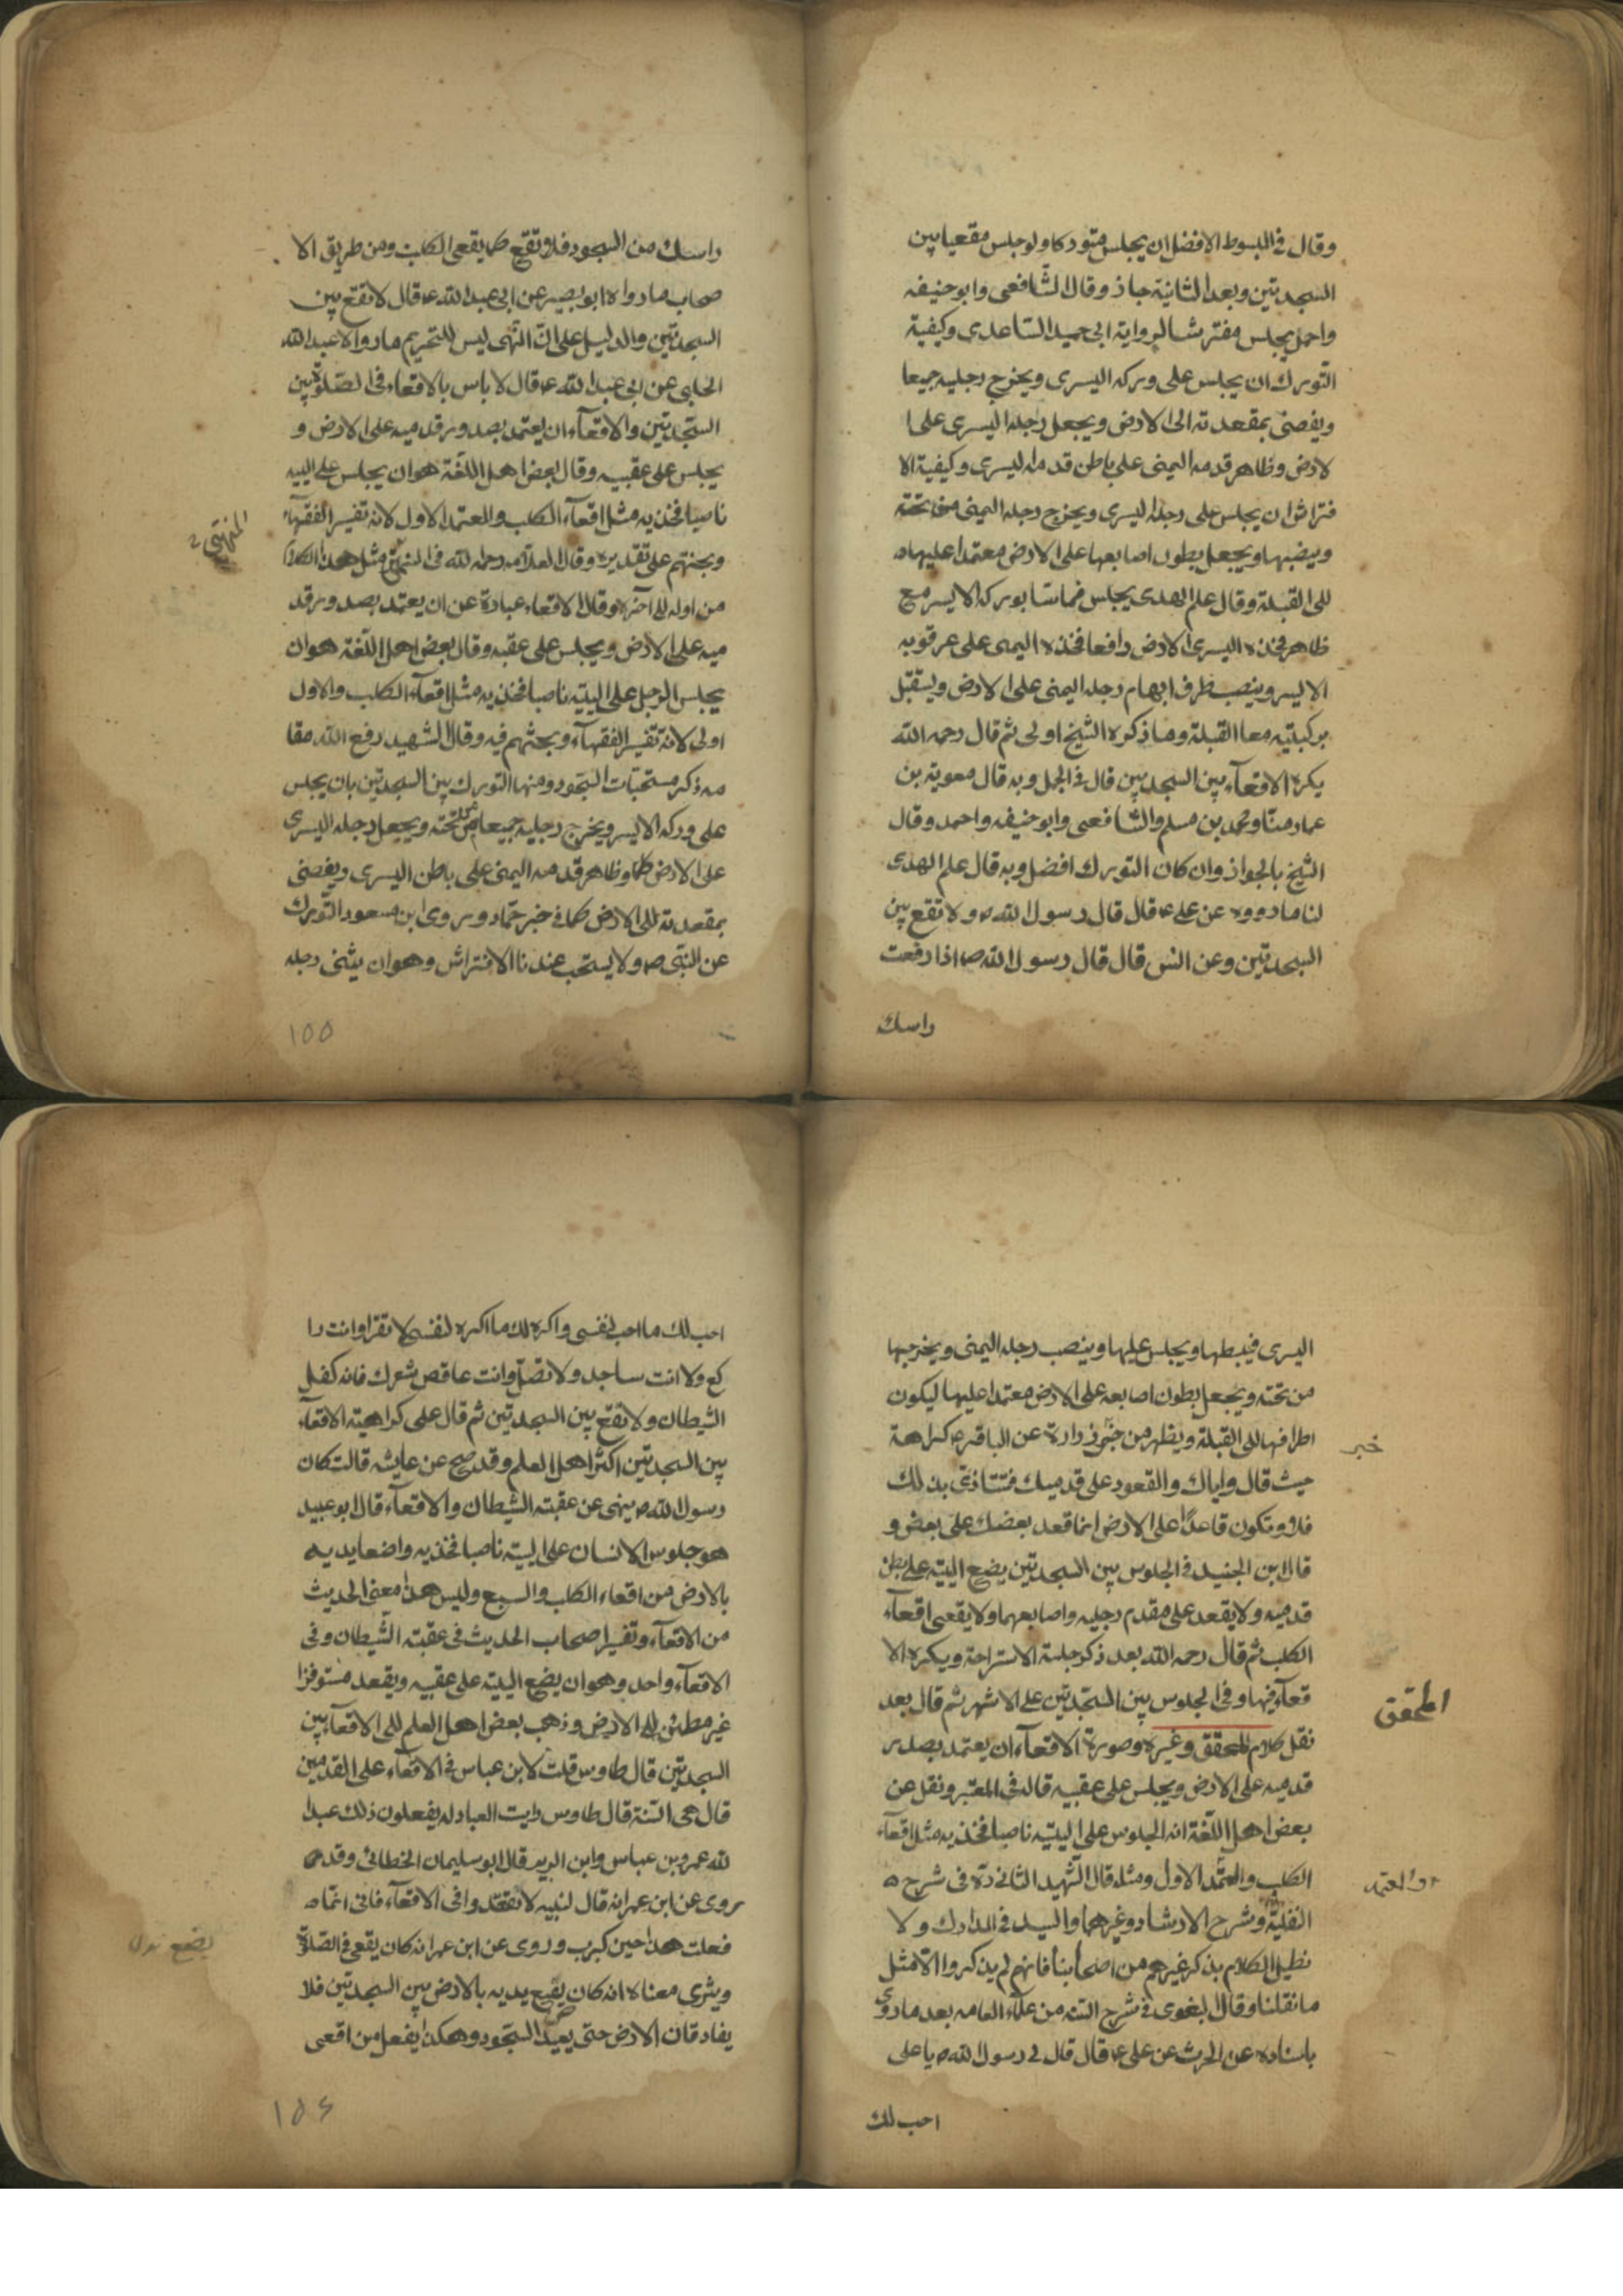 وقال في المبسوط الافضل ان يجلس متوركا ولو جلس مقعيا بين
السجدتين وبعد الثانية جاز وقال الشافعى وابو حنيفه
واحمد يجلس مفترشا لرواية ابى حميد الساعدى وكيفية
التورك ان يجلس على وركه اليسرى ويخرج رجليه جميعا
ويفضى بمقعدته الى الارض ويجعل رجله اليسرى على ا
لارض وظاهر قدمه اليمنى على باطن قدمه اليسرى وكيفية الا
فتراش ان يجلس على رجله اليسرى ويخرج رجله اليمنى من تحته
وينصبها ويجعل بطون اصابعها على الارض معتمدا عليها
الى القبلة وقال علم الهدى يجلس مماسا بوركه الايسر مع
ظاهر فخذه اليسرى الارض رافعا فخذه اليمنى على عرقوبه
الايسر وينصب طرف ابهام رجله اليمنى على الارض ويستقبل
بركبتيه معا القبلة وما ذكره الشيخ اولى ثم قال رحمه الله
يكره الاقعآء بين السجدتين قال في الجمل وبه قال معوية بن
عمار منا ومحمد بن مسلم والشافعى وابو حنيفه واحمد وقال
الشيخ بالجواز وان كان التورك افضل وبه قال علم الهدى
لنا ما رووه عن على ع قال قال رسول الله ص ولا تقع بين
السجدتين وعن انس قال قال رسول الله ص اذا رفعت
راسك
راسك من السجود فلا تقع كما يقعى الكلب ومن طريق الا
صحاب ما رواه ابو بصير عن ابى عبد الله ع قال لا تقع بين
السجدتين والدليل على ان النهى ليس للتحريم ما رواه عبد الله
الحلبى عن ابى عبد الله ع قال لا باس بالاقعاء فى الصلوة بين
السجدتين والاقعآء ان يعتمد بصدور قدميه على الارض و
يجلس على عقبيه وقال بعض اهل اللغة هو ان يجلس على اليتيه
ناصبا فخذيه مثل اقعآء الكلب والمعتمد الاول لانه تفسير الفقهآء
وبحثهم على تقديره وقال العلامه رحمه الله فى المنتهى مثل هذا الكلام
المنتهى
من اوله الى آخره وقال الاقعاء عبارة عن ان يعتمد بصدور قد
ميه على الارض ويجلس على عقبه وقال بعض اهل اللغة هو ان
يجلس الرجل على اليتيه ناصبا فخذيه مثل اقعآء الكلب والاول
اولى لانه تفسير الفقهآء وبحثهم فيه وقال الشهيد رفع الله مقا
مه ذكر مستحبات السجود ومنها التورك بين السجدتين بان يجلس
على وركه الايسر ويخرج رجليه جميعا من تحته ويجعل رجله اليسرى
على الارض وظاهر قدمه اليمنى على باطن اليسرى ويفضى
بمقعدته الى الارض كما في خبر حماد وروى ابن مسعود التورك
عن النبى ص ولا يستحب عندنا الافتراش وهو ان يثنى رجله
١٥٥
اليسرى فيبسطها ويجلس عليها وينصب رجله اليمنى ويخرجها
من تحته ويجعل بطون اصابعه على الارض معتمدا عليها ليكون
اطرافها الى القبلة ويظهر من خبر زرارة عن الباقر ع كراهة
خبر
حيث قال واياك والقعود على قدميك فتتاذى بذلك
فلا وتكون قاعدا على الارض انما قعد بعضك على بعض و
قال ابن الجنيد فى الجلوس بين السجدتين يضع اليتيه على بطن
قدميه ولا يقعد على مقدم رجليه واصابعهما ولا يقعى اقعآء
الكلب ثم قال رحمه الله بعد ذكر جلسة الاستراحة ويكره الا
قعآء فيها وفى الجلوس بين السجدتين على الاشهر ثم قال بعد
المحقق
نقل كلام المحقق وغيره وصورة الاقعآء ان يعتمد بصدر
قدميه على الارض ويجلس على عقبيه قاله فى المعتبر ونقل عن
بعض اهل اللغة انه الجلوس على اليتيه ناصبا فخذيه مثل اقعآء
الكلب والمعتمد الاول ومثله قال الشهيد الثانى ره فى شرح
والمعتمد
النفلية وشرح الارشاد وغيرهما والسيد فى المدارك ولا
نطيل الكلام بذكر غيرهم من اصحابنا فانهم لم يذكروا الا مثل
ما نقلنا وقال البغوى فى شرح السنه من علمآء العامه بعد ما روى
باسناده عن الحرث عن على ع قال قال لى رسول الله ص يا على
احب لك
احب لك ما احب لنفسى واكره لك ما اكره لنفسى لا تقرا وانت را
كع ولا انت ساجد ولا تصل وانت عاقص شعرك فانه كفل
الشيطان ولا تقع بين السجدتين ثم قال على كراهية الاقعآء
بين السجدتين اكثر اهل العلم وقد صح عن عايشه قالت كان
رسول الله ص ينهى عن عقبة الشيطان والاقعآء قال ابو عبيد
هو جلوس الانسان على اليتيه ناصبا فخذيه واضعا يديه
بالارض من اقعاء الكلب والسبع وليس هذا معنى الحديث
من الاقعآء وتفسير اصحاب الحديث فى عقبة الشيطان وفى
الاقعآء واحد وهو ان يضع اليتيه على عقبيه ويقعد مستوفزا
غير مطمئن الى الارض وذهب بعض اهل العلم الى الاقعآء بين
السجدتين قال طاوس قلت لابن عباس فى الاقعآء على القدمين
قال هى السنة قال طاوس رايت العبادله يفعلون ذلك عبد ا
لله عمر وبن عباس وابن الزبير قال ابو سليمان الخطائى وقد
روى عن ابن عمر انه قال لبنيه لا تقتدوا فى الاقعآء فانى انما
فعلت هذا حين كبرت وروى عن ابن عمر انه كان يقعى فى الصلوة
يضع بدل
ويثرى معناه انه كان يقيع يديه بالارض بين السجدتين فلا
يفارقان الارض حتى يعيد السجود وهكذا يفعل من اقعى
١٥٦